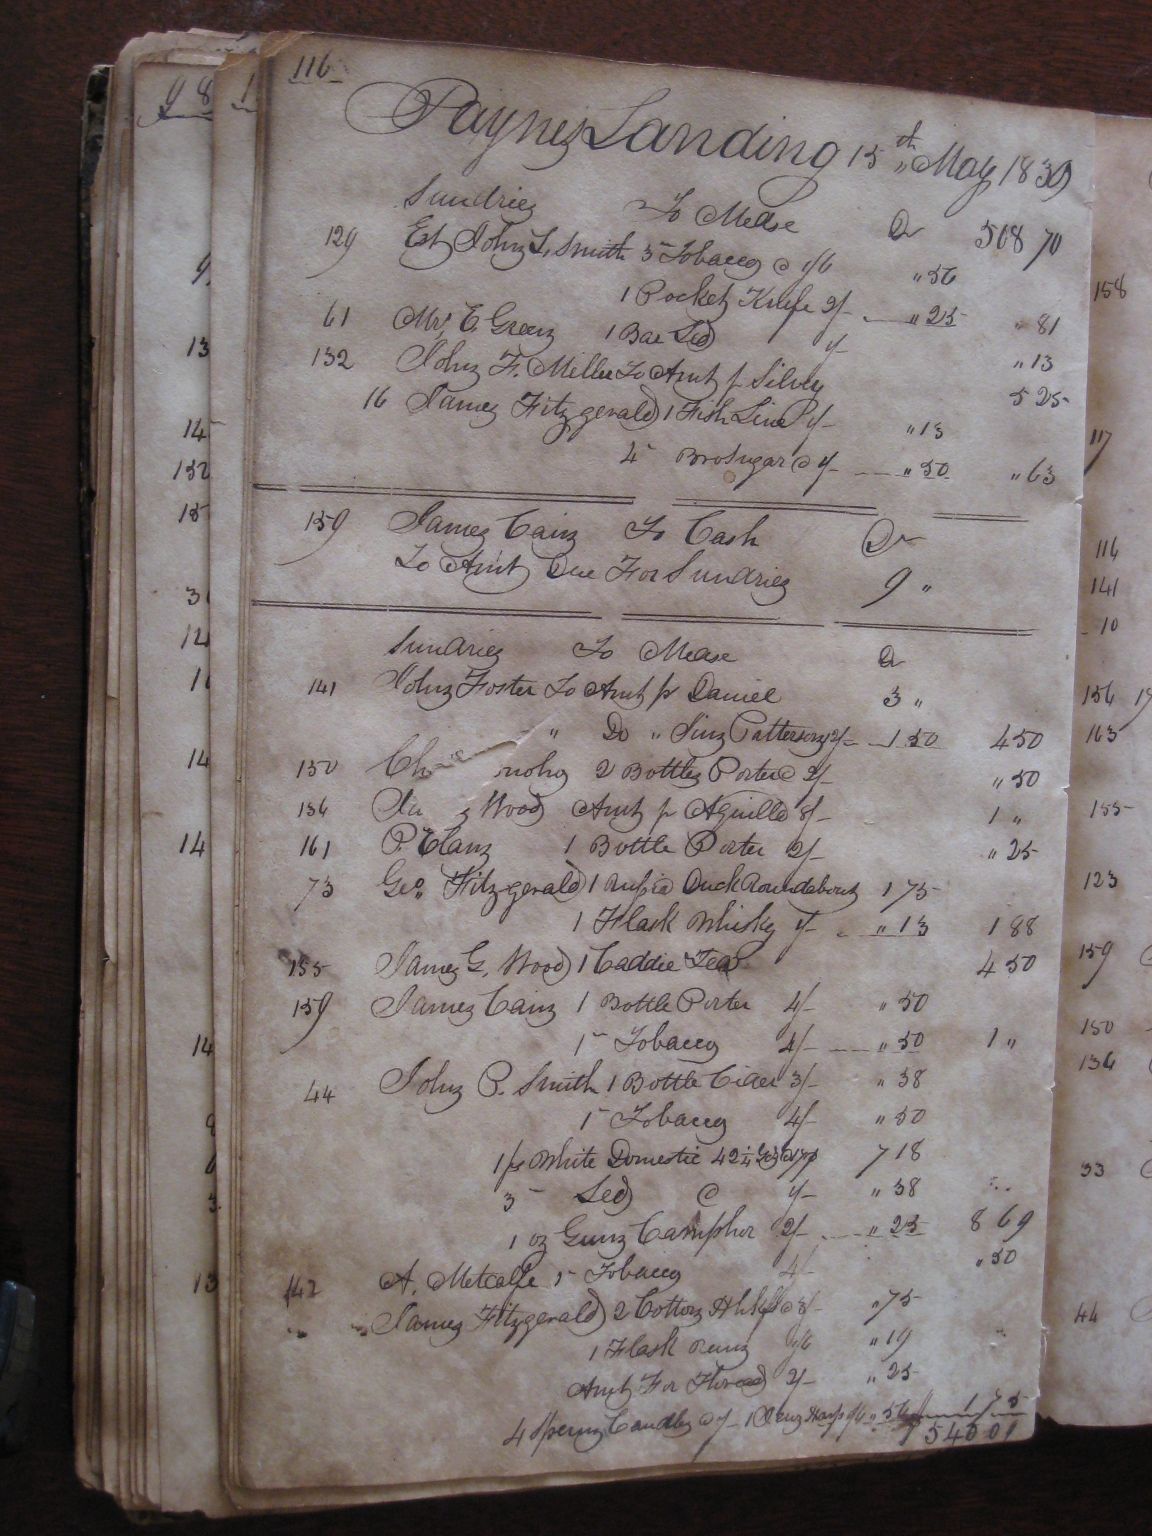 116
Paynes Landing 15th " May 1839
Sundries To Mdse Dr 508 70
129 Est John L. Smith 3 Tobacco @ 1/6 " 56
1 Pocket Knife 2/- " 25 " 81
61 Mrs E Green 1 Bar Led 1/- " 13
132 John F. Miller To Amt pr Silvey 5 25
16 James Fitzgerald 1 Fish Line 1/- " 13
4 Bro Sugar @ 1/- " 50 " 63
159 James Cain To Cash Dr
To Amt Due For Sundries 9 "
Sundries To Mdse Dr
141 John Foster To Amt pr Daniel 3 "
" Do " Jim Patterson 12/- 1 50 4 50
150 2 Bottles Porter @ 2/- " 50
136 Wood Amt pr Aguilla 8/- 1 "
161 P. Clanz 1 Bottle Porter 2/- " 25
73 Geo. Fitzgerald 1 Russia Duck Roundabout 1 75
1 Flask Whisky 1/- " 13 1 88
155 James G. Wood 1 Caddie Tea 4 50
159 James Cain 1 Bottle Porter 4/- " 50
1 Tobacco 4/- " 50 1 "
44 John P. Smith 1 Bottle Cider 3/- " 38
1 Tobacco 4/- " 50
1 ps White Domestic 42 1/4 7 18
3 Led @ 1/- " 38
1 oz Gum Camphor 2/- " 25 8 69
142 A. Metcalfe 1 Tobacco 4/- " 50
James Fitzgerald 2 Cotton Hkfs @ 3/- " 75
1 Flask Rum 1/6 " 19
Amt For Thread 2/- " 25
4 Sperm Candles @ 1/- 1 Harp 1/6 " 56 1 75
540 01
98
13
14
152
15
3
14
14
14
13
158
117
116
141
10
156
163
155
123
159
150
136
33
44